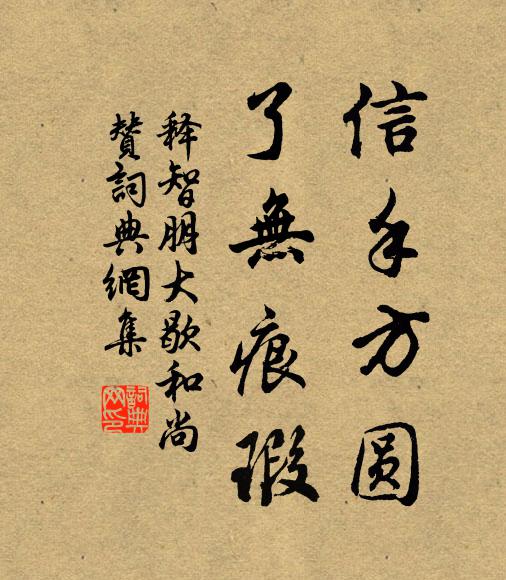 信手方圆
了無痕瑕
释智朋大歇和尚
赞詞典網集
詞典
网印